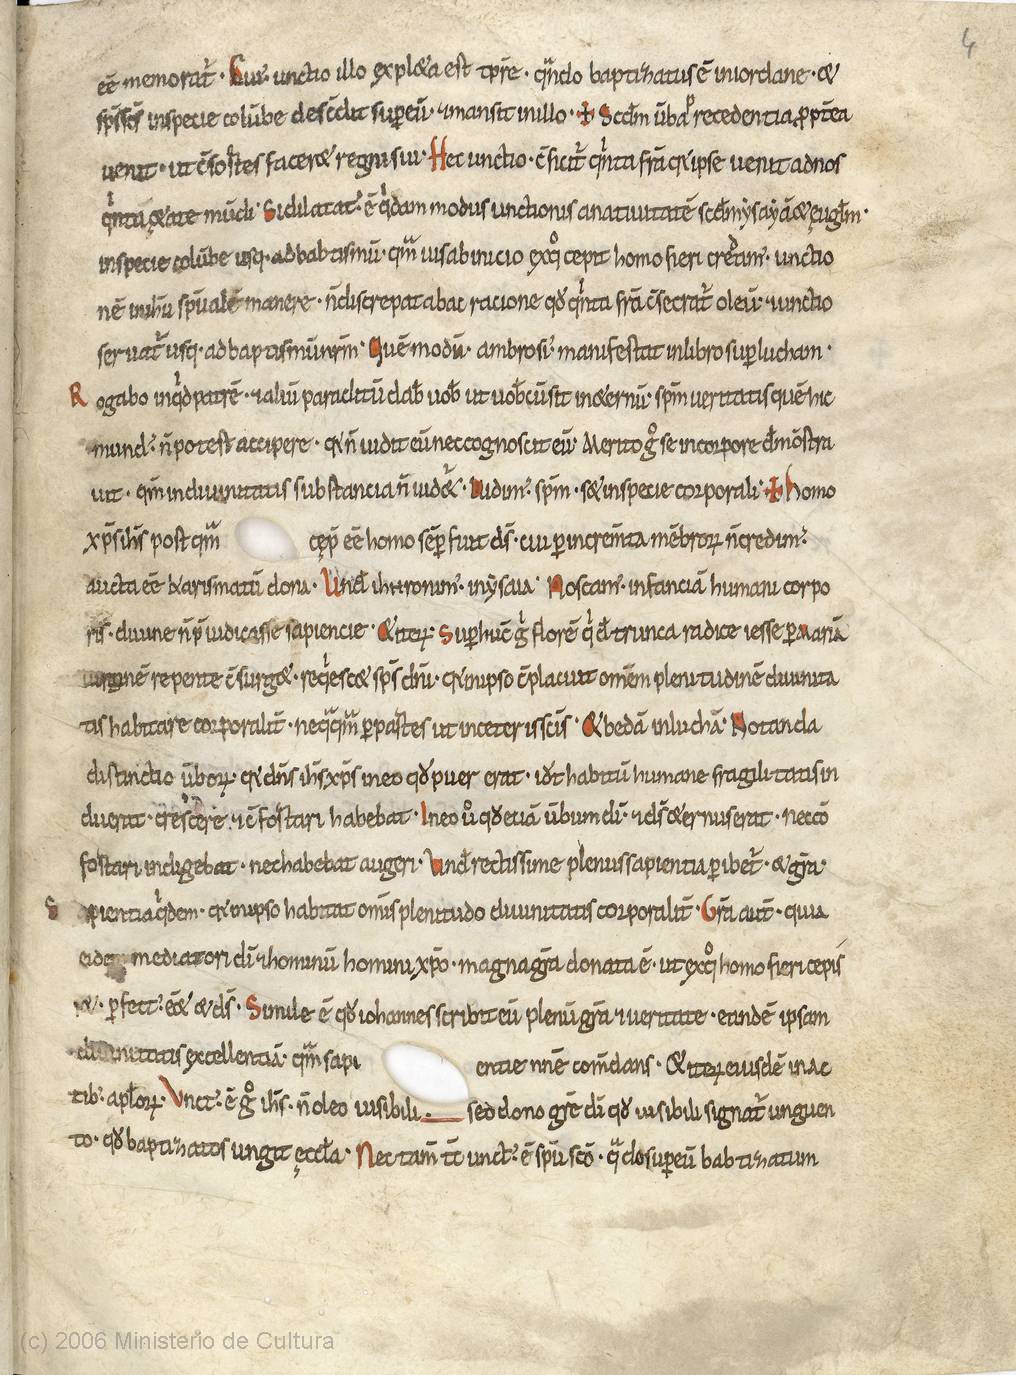 4
eē memorat̄. Cuı᷒ unctio illo explæta est tp̄re. qn̄do baptizatus ē iniordane. &
sp̄s sc̄s inspecie colūbe descēdit sup eū. ⁊mansit inillo. + Scd̄m ūba recedentia ꝓpt̄ea
uenit. ut c̄sortes facer& regni sui. Hec unctio. c̄ficit̄ qⁱnta fr̄a q͛ ipse uenit adnos
qⁱnta ętate mūdi. Si dilatat᷒ ē qⁱdam modus unctionis anatiuitatē scd̄m ysaýā & ęuglm̄.
inspecie colūbe usq; adbabtismū. qm̄ uisabinicio exq̊ cepit homo fieri credim᷒. unctio
nē inih̄u sp̄ualē manere. n̄discrepat abac racione qđ qⁱnta fr̄a c̄secrat̄ oleū. ⁊unctio
seruat̄ usq; adbaptismūnr̄m. Quē modū. ambrosi᷒ manifestat inlibro sup lucham.
Rogabo inqⁱd patrē. ⁊aliū paraclitū dab̄ uob̄ ut uob̄cū sit in&ernū. sp̄m ueritatis quē hic
mund᷒ n̄ potest accipere. q͛ n̄ uidit eū nec cognoscit eū. Merito g̊ se incorpore dēmōstra
uit. qm̄ indiuinitatis substancia n̄ uid&̄. Vidim᷒ sp̄m. s& inspecie corporali. + homo
xp̄s ih̄s post qm̄ cęp̄ eē homo sēp fuit ds̄. cui p increm̄ta mēbroꝝ n̄credim᷒
aucta eē karismatū dona. Und̄ iheronim᷒. inýsaia. Noscam᷒. infanciā humani corpo
ris. diuine n̄ p̄iudicasse sapiencie. &iteꝝ. Sup hūc g̊ florē qⁱ d̄ trunca radice iesse p Mariā
uirginē repente c̄surg&. reqⁱesc& sp̄s dn̄i. q͛ inipso c̄placuit omēm plenitudinē diuinita
tis habitare corporalit̄. neqͣqͣm p partes ut inceteris sc̄is. & bedā inluchā. Notanda
distinctio ūboꝝ. q͛ dn̄s ih̄s xp̄s ineo qđ puer erat. idē habitū humane fragilitatis in
duerat. crescere. ⁊c̄fortari habebat. Ineo ů qđ etiā ūbum di᷒. ⁊ds̄ &ernus erat. neccō
fortari indigebat. nechabebat augeri. Und̄ rectissime plenus sapientia p ibet̄. & gr̄a.
Sapientia qⁱdem. q͛ inipso habitat omīs plenitudo diuinitatis corporalit̄. Gr̄a aut̄. quia
eidē mediatori di᷒ ⁊hominū homini, xp̄o. magna gr̄a donata ē. ut exq̊ homo fieri cepis
s&. pfect᷒ eē& & ds̄. Simile ē qđ iohannes scribit eū plenū gr̄a ⁊ueritate. eandē ipsam
diuinitatis excellentiā. qm̄ sapi entie nn̄e com̄dans. & iteꝝ eiusdē inac
tib᷒ apl̄oꝝ. Unct᷒ ē g̊ ih̄s. n̄ oleo uisibili. sed dono gr̄e di᷒ qđ uisibili signat̄ unguen
to. qđ baptizatos ungit ęccl̄a. Nec tam̄ tc̄ unct᷒ ē sp̄u sc̄o. qͣdo sup eū babtizatum
(c) 2006 Ministerio de Cultura